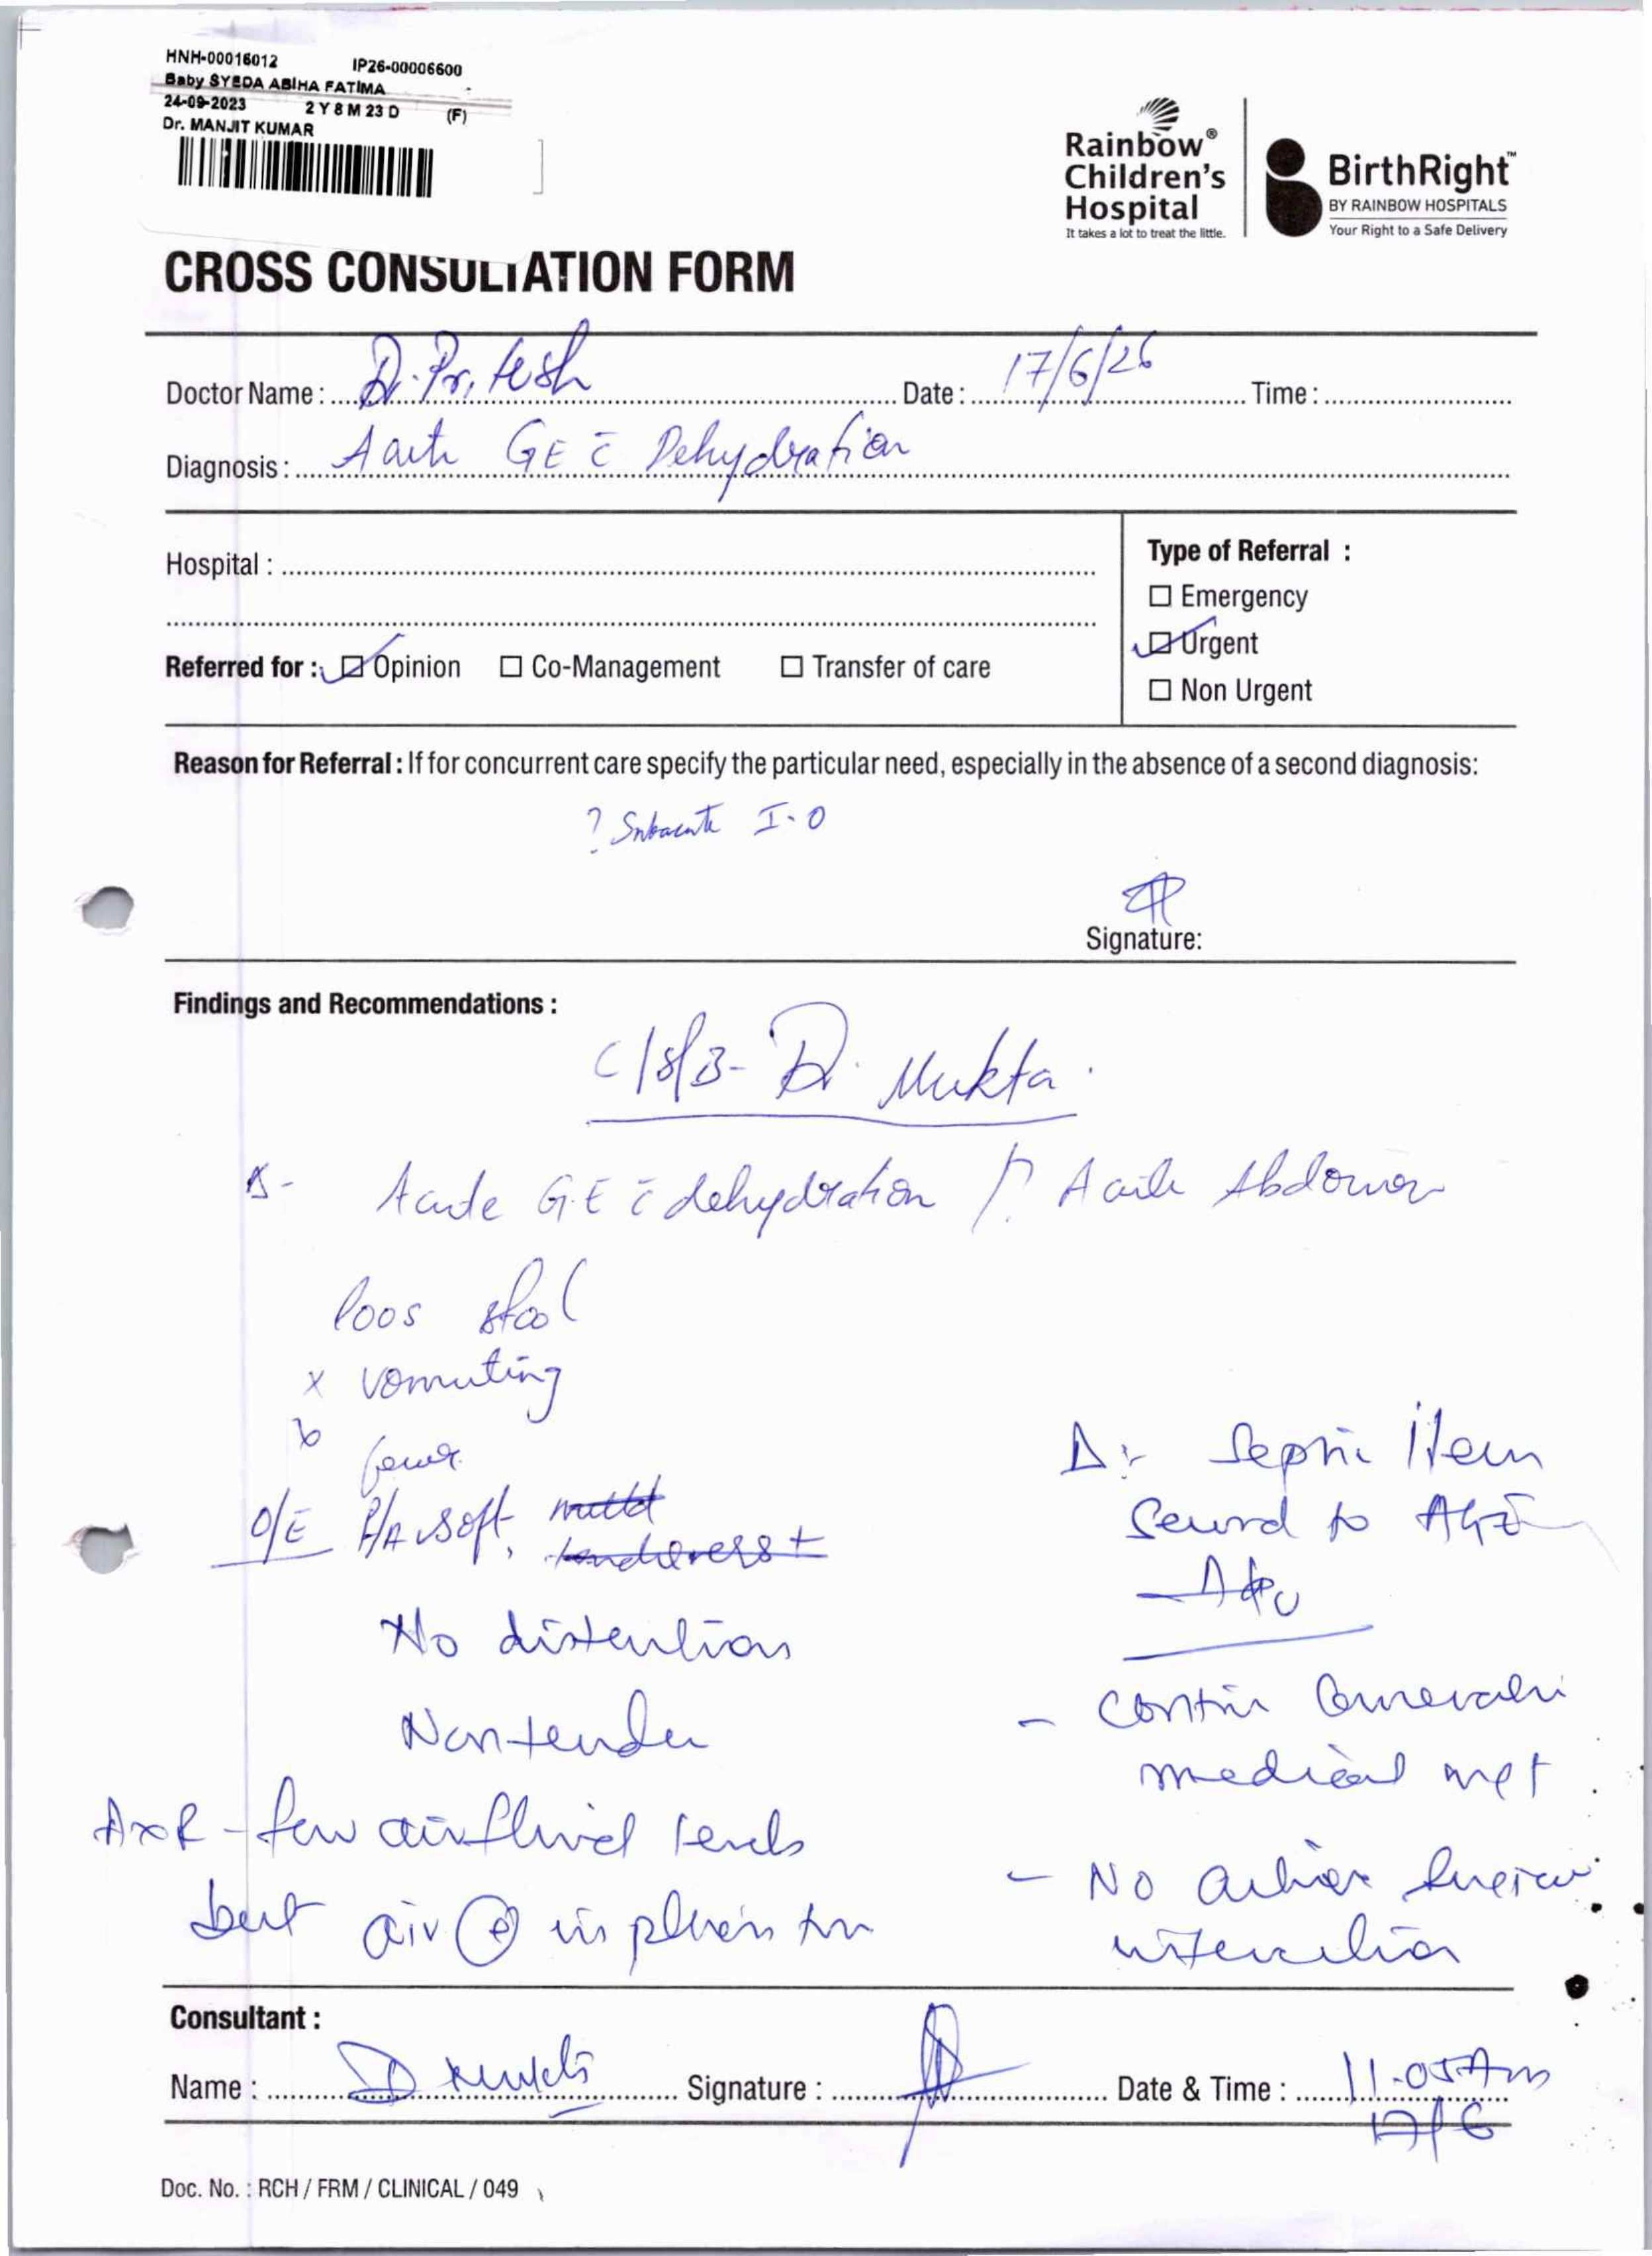 HNH-00016012 IP26-00006600
Baby SYEDA ABIHA FATIMA
24-09-2023 2 Y 8 M 23 D (F)
Dr. MANJIT KUMAR
Rainbow®
Children's
Hospital
It takes a lot to treat the little.
BirthRight™
BY RAINBOW HOSPITALS
Your Right to a Safe Delivery
CROSS CONSULTATION FORM
Doctor Name : Dr. Pritesh Date : 17/6/26 Time :
Diagnosis : GE c̄ Dehydration
Hospital :
Type of Referral :
☐ Emergency
☑ Urgent
☐ Non Urgent
Referred for : ☑ Opinion ☐ Co-Management ☐ Transfer of care
Reason for Referral : If for concurrent care specify the particular need, especially in the absence of a second diagnosis:
? Subacute I.O
Signature:
Findings and Recommendations :
C/S/B- Dr. Mukta.
Δ- Acute G.E c̄ dehydration /? Acute Abdomen
loos stool
x vomuting
fever
O/E P/A soft, tenderness +
No distention
Non tender
AxR - few air fluid levels
but air ⊕ in
Δ:-
to
- medical mgt
- No
Consultant :
Name : Signature : Date & Time : 11.05 Am
17/6
Doc. No. : RCH / FRM / CLINICAL / 049